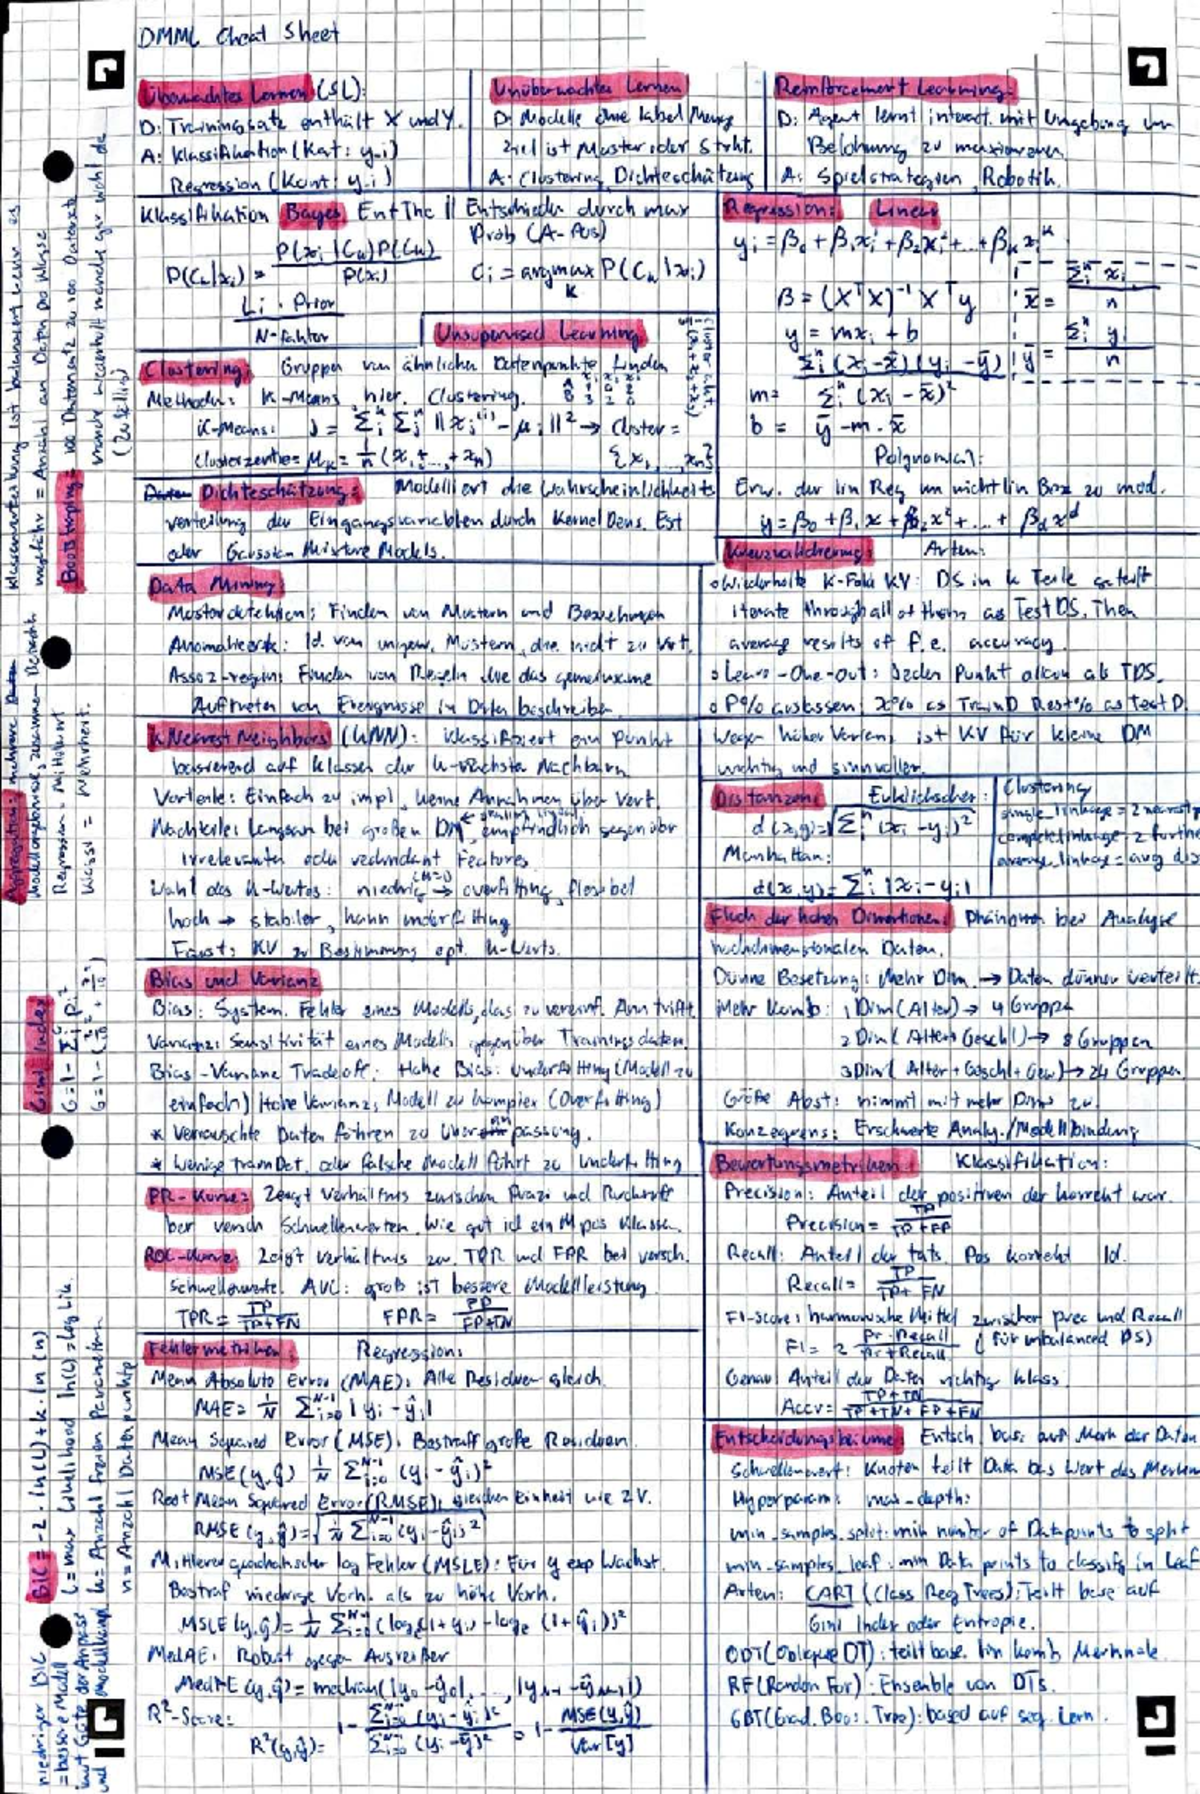 DMML Cheat Sheet
Überwachtes Lernen (SL):
D: Trainingssatz enthält X und Y.
A: Klassifikation (Kat: y_i)
Regression (Kont: y_i)
Unüberwachtes Lernen
D: Modelle ohne label Menge
Ziel ist Muster oder Strkt.
A: Clustering, Dichteschätzung
Reinforcement Learning:
D: Agent lernt interact. mit Umgebung um
Belohnung zu maximieren.
A: Spielstrategien, Robotik.
Klassifikation Bayes EntThe || Entscheiden durch max
Prob (A-Pos)
P(C_k|x_i) = P(x_i|C_k)P(C_k) / P(x_i)
C_i = argmax_K P(C_k|x_i)
Li · Prior
N-faktor
Regression: Linear
y_i = β_0 + β_1x_i + β_2x_i² + ... + β_k x_i^k
β = (XᵀX)⁻¹ Xᵀy
x̄ = Σ_i^n x_i / n
y = mx_i + b
ȳ = Σ_i^n y_i / n
m = Σ_i^n (x_i - x̄)(y_i - ȳ) / Σ_i (x_i - x̄)²
b = ȳ - m · x̄
Polynomial:
Erw. der lin Reg um nichtlin Bez zu mod.
y = β_0 + β_1 x + β_2x² + ... + β_d x^d
Unsupervised Learning
Clustering: Gruppen von ähnlichen Datenpunkte finden
Methoden: K-Means, hier. Clustering.
K-Means: J = Σ_i^k Σ_j^n ||x_j^(i) - μ_i||² → Cluster =
Clusterzentrie = μ_k = 1/n (x_1 + ... + x_n) {x_1, ..., x_n}
Dichteschätzung: Modelliert die Wahrscheinlichkeits
verteilung der Eingangsvariablen durch Kernel Dens. Est
oder Gaussian Mixture Models.
Data Mining:
Musterdetektion: Finden von Mustern und Beziehungen
Anomalieerk: Id. von ungew. Mustern, die nicht zu Vert.
Assoz-regeln: Finden von Regeln die das gemeinsame
Auftreten von Ereignisse in Daten beschreiben.
Kreuzvalidierung: Arten:
o Wiederholte K-Fold KV: DS in k Teile geteilt
iterate through all of them as TestDS. Then
average results of f.e. accuracy.
o Leave-One-out: Jeden Punkt allein als TDS.
o P% auslassen: x% as TrainD Rest% as Test D.
Wegen hoher Varianz ist KV für kleine DM
wichtig und sinnvoller.
k Nearest Neighbors (kNN): Klassifiziert ein Punkt
basierend auf Klassen der k-nächsten Nachbarn.
Vorteile: Einfach zu impl, keine Annahmen über Vert.
Nachteile: Langsam bei großen DM, empfindlich gegenüber
irrelevanten oder redundant Features
Wahl des k-Wertes: niedrig → overfitting, flexibel
hoch → stabiler, kann underfitting
Faust: KV zu Bestimmung opt. k-Werts.
Distanzen: Euklidischer:
d(x,y) = √Σ_i^n (x_i - y_i)²
Manhattan:
d(x,y) = Σ_i^n |x_i - y_i|
Clustering
single_linkage = 2 nearest
complete linkage = 2 furthe
average_linkage = avg dis
Fluch der hohen Dimensionen: Phänomen bei Analyse
hochdimensionalen Daten.
Dünne Besetzung: Mehr Dim. → Daten dünner verteilt.
Mehr Komb: 1 Dim (Alter) → 4 Gruppe
2 Dim (Alter + Geschl) → 8 Gruppen
3 Dim (Alter + Geschl + Gew) → 24 Gruppen
Größe Abst: nimmt mit mehr Dims zu.
Konzequens: Erschwerte Analy. / Modellbindung
Bias und Varianz
Bias: System. Fehler eines Modells, das zu vereinf. Ann trifft.
Varianz: Sensitivität eines Modells gegenüber Trainingsdaten.
Bias-Variane Tradeoff: Hohe Bias: Underfitting (Modell zu
einfach) Hohe Varianz: Modell zu komplex (Overfitting)
* Verrauschte Daten führen zu überanpassung.
* Wenige trainDat. oder falsche Modell führt zu underfitting
PR-Kurve: Zeigt Verhältnis zwischen Präzi und Rückruf
bei versch Schwellenwerten. Wie gut id ein M pos Klasse.
ROC-Kurve: Zeigt Verhältnis zw. TPR und FPR bei versch.
Schwellenwerte. AUC: groß ist bessere Modelleistung
TPR = TP / TP+FN FPR = FP / FP+TN
Bewertungsmetriken: Klassifikation:
Precision: Anteil der positiven der korrekt war.
Precision = TP / TP+FP
Recall: Anteil der tats. Pos korrekt Id.
Recall = TP / TP+FN
F1-score: harmonische Mittel zwischen prec und Recall
F1 = 2 Pr·Recall / Pr+Recall (für imbalanced DS)
Genau Anteil der Daten richtig klass.
Accu = TP+TN / TP+TN+FP+FN
Fehlermetriken: Regression:
Mean Absolute Error (MAE): Alle Residuen gleich.
MAE = 1/N Σ_{i=0}^{N-1} |y_i - ŷ_i|
Mean Squared Error (MSE): Bestraft große Residuen.
MSE(y,ŷ) 1/N Σ_{i=0}^{N-1} (y_i - ŷ_i)²
Root Mean Squared Error (RMSE): gleichen Einheit wie ZV.
RMSE(y,ŷ) = √1/N Σ_{i=0}^{N-1} (y_i - ŷ_i)²
Mittlerer quadratischer log Fehler (MSLE): Für y exp Wachst.
Bestraf niedrige Vorh. als zu hohe Vorh.
MSLE(y,ŷ) = 1/N Σ_{i=0}^{N-1} (log_e(1+y_i) - log_e (1+ŷ_i))²
MedAE: Robust gegen Ausreißer
MedAE(y,ŷ) = median(|y_0 - ŷ_0|, ..., |y_{n-1} - ŷ_{n-1}|)
R²-Score:
R²(y,ŷ) = 1 - Σ_{i=0}^{N-1} (y_i - ŷ_i)² / Σ_{i=0}^{N-1} (y_i - ȳ)² = 1 - MSE(y,ŷ) / Var[y]
Entscheidungsbäume: Entsch bas. auf Merk der Daten
Schwellenwert: Knoten teilt Data bas Wert des Merkm
Hyperparam: max-depth:
min_samples_split: min number of Datapoints to split
min_samples_leaf: min Data points to classify in Leaf
Arten: CART (Class Reg Trees): Teilt base auf
Gini Index oder Entropie.
ODT (Oblique DT): teilt base. lin komb Merkmale.
RF (Random For): Ensemble von DTs.
GBT (Grad. Boos. Tree): based auf seq. Lern.
Klassenverteilung ist balanciert wenn es
ungefähr = Anzahl an Daten pro Klasse
Bootstrapping = 100 Datensatz zu 100 Datensatz
manche wiederholt manche gar nicht da
(zufällig)
Aggregation: mehrere
Modellergebnisse zusamme
Regression = Mittelwert
Klassi = Mehrheit.
Gini Index
G = 1 - Σ_i^C p_i²
BIC = -2 · ln(L) + k · ln(n)
L = max Likelihood ln(L) = Log Lik.
k = Anzahl freien Parametern
n = Anzahl Datenpunkte
niedriger BIC
= besseres Modell
mit Güte der Anpass
und Modellkompl